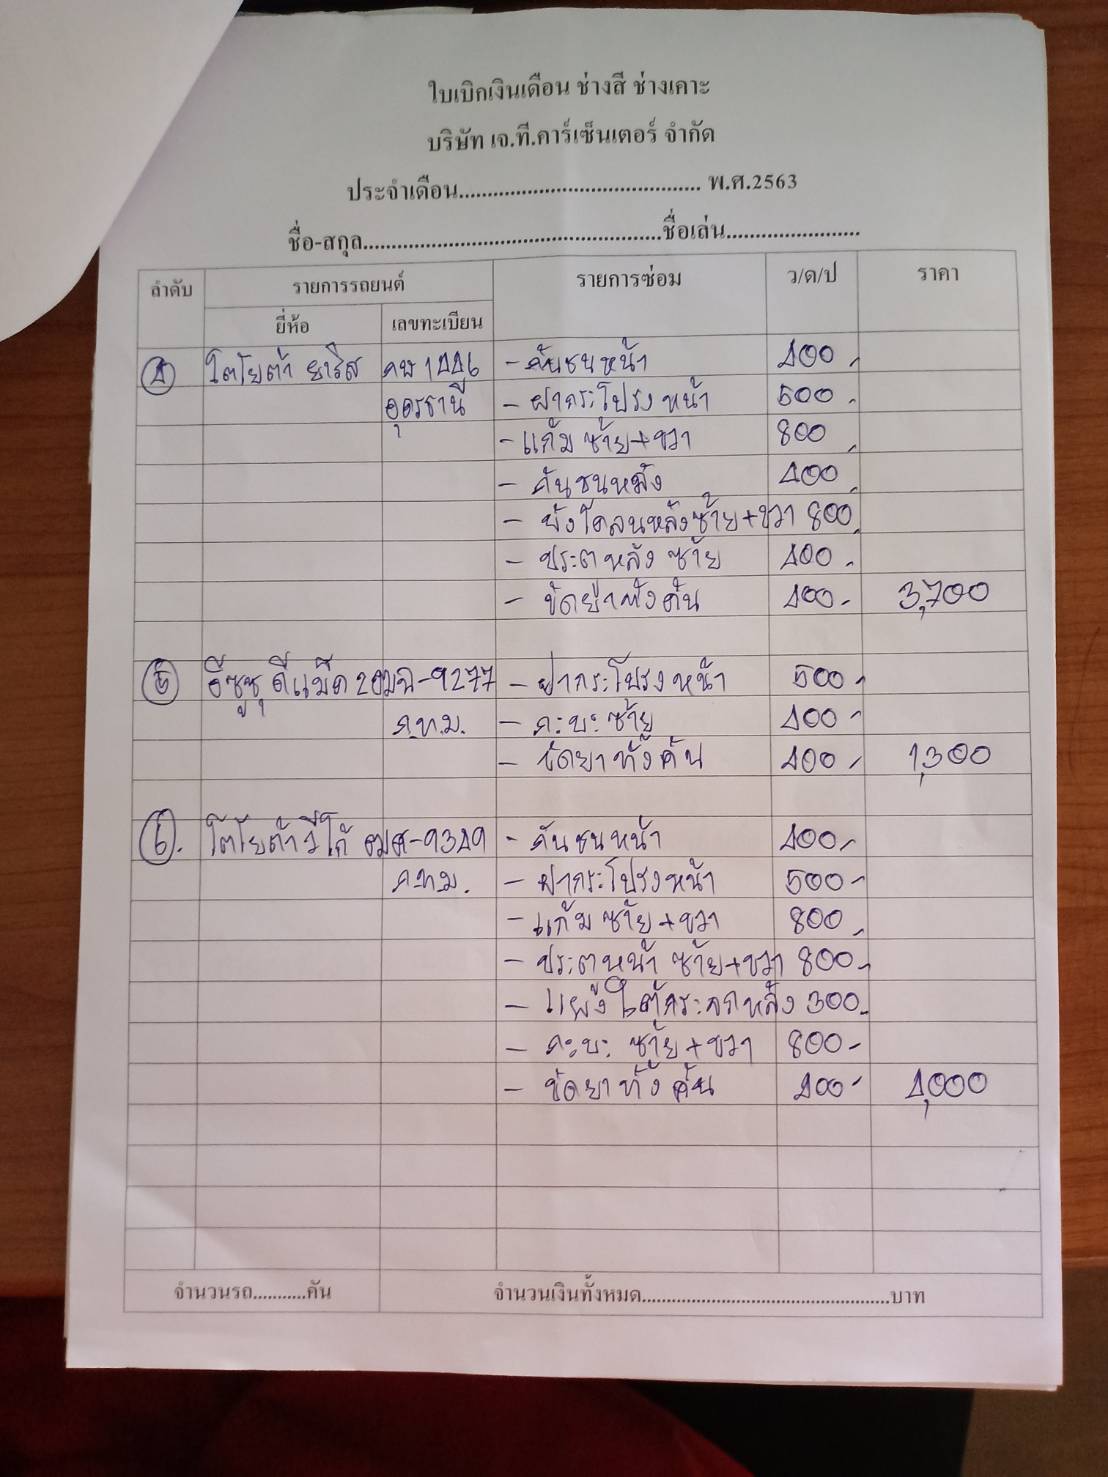 ใบเบิกเงินเดือน ช่างสี ช่างเคาะ
บริษัท เจ.ที.คาร์เซ็นเตอร์ จำกัด
ประจำเดือน.......................................... พ.ศ.2563
ชื่อ-สกุล....................................................ชื่อเล่น.......................
ลำดับ รายการรถยนต์ รายการซ่อม ว/ด/ป ราคา
ยี่ห้อ เลขทะเบียน
4 โตโยต้า ยาริส 1446 - กันชนหน้า 400.-
อุดรธานี - ฝากระโปรงหน้า 500.-
- แก้ม ซ้าย+ขวา 800.-
- กันชนหลัง 400.-
- บังโคลนหลังซ้าย+ขวา 800.-
- ประตูหลัง ซ้าย 400.-
- ขัดยาทั้งคัน 400.- 3,700
5 อีซูซุ ดีแม็ค 9277 - ฝากระโปรงหน้า 500.-
ก.ท.ม. - กะบะ ซ้าย 400.-
- ขัดยาทั้งคัน 400.- 1,300
6. โตโยต้า วีโก้ -9349 - กันชนหน้า 400.-
ก.ท.ม. - ฝากระโปรงหน้า 500.-
- แก้ม ซ้าย+ขวา 800.-
- ประตหน้า ซ้าย+ขวา 800.-
- แผงใต้กระจกหลัง 300.-
- กะบะ ซ้าย+ขวา 800.-
- ขัดยาทั้งคัน 400.- 4,000
จำนวนรถ...........คัน จำนวนเงินทั้งหมด..................................................บาท